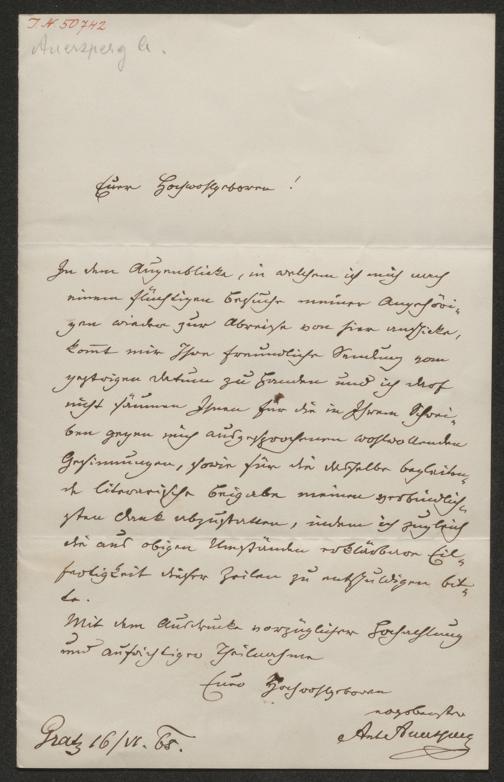 I. N. 50742
Auersperg A.
Euer Hochwohlgeboren!
In dem Augenblicke, in welchem ich mich nach
einem flüchtigen Besuche meiner Angehöri-
gen wieder zur Abreise von hier anschicke,
kommt mir Ihre freundliche Sendung vom
gestrigen Datum zu Handen und ich darf
nicht säumen Ihnen für die in Ihrem Schrei-
ben gegen mich ausgesprochenen wohlwollenden
Gesinnungen, sowie für die dasselbe begleiten-
de literarische Beigabe meinen verbindlich-
sten Dank abzustatten, indem ich zugleich
die aus obigen Umständen erklärbare Eil-
fertigkeit dieser Zeilen zu entschuldigen bit-
te.
Mit dem Ausdrucke vorzüglicher Hochachtung
und aufrichtiger Theilnahme
Euer Hochwohlgeboren
ergebenster
Ant. Auersperg
Gratz 16/VI. 68.